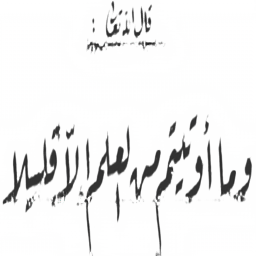 قال الله تعالى :
وما أوتيتم من العلم إلا قليلا